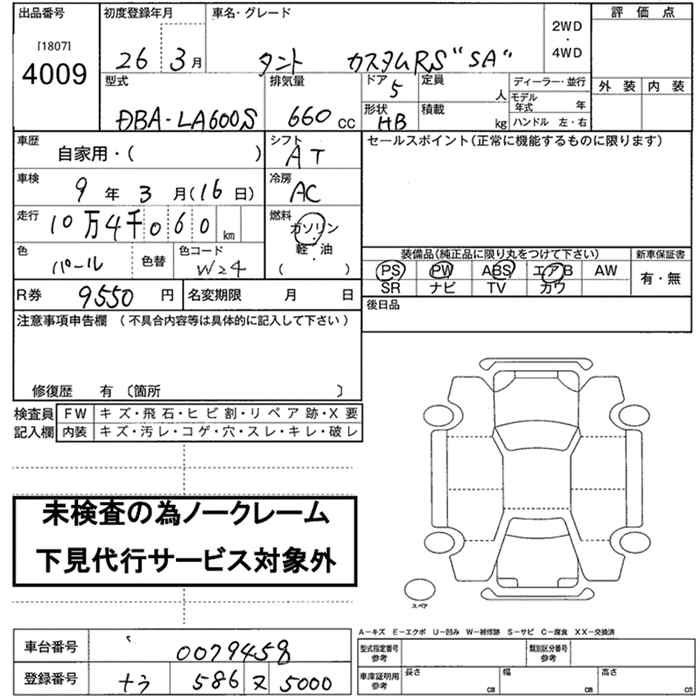 出品番号
[1807]
4009
初度登録年月
26年 3月
車名・グレード
タント カスタムRS "SA"
2WD
・
4WD
評価点
外装 内装
型式
DBA-LA600S
排気量
660 CC
ドア 5
定員 人
形状 HB
積載 kg
ディーラー・並行
モデル年式 年
ハンドル 左・右
車歴 自家用・( )
シフト AT
セールスポイント(正常に機能するものに限ります)
車検 9年 3月(16日)
冷房 AC
走行 10万4千060 km
燃料 ガソリン
軽・油
( )
色 パール
色替
色コード W24
装備品(純品品に限り丸をつけて下さい)
新車保証書
PS PW ABS エアB AW
SR ナビ TV カワ
有・無
R券 9550 円
名変期限 月 日
後日品
注意事項申告欄 (不具合内容等は具体的に記入して下さい)
修復歴 有 〔箇所 〕
検査員 FW キズ・飛石・ヒビ割・リペア跡・X要
記入欄 内装 キズ・汚レ・コゲ・穴・スレ・キレ・破レ
未検査の為ノークレーム
下見代行サービス対象外
スペア
A-キズ E-エクボ U-凹み W-補修跡 S-サビ C-腐食 XX-交換済
車台番号 0079458
登録番号 586 ヌ 5000
型式指定番号 参考
類別区分番号 参考
車庫証明用 参考
長さ cm 幅 cm 高さ cm